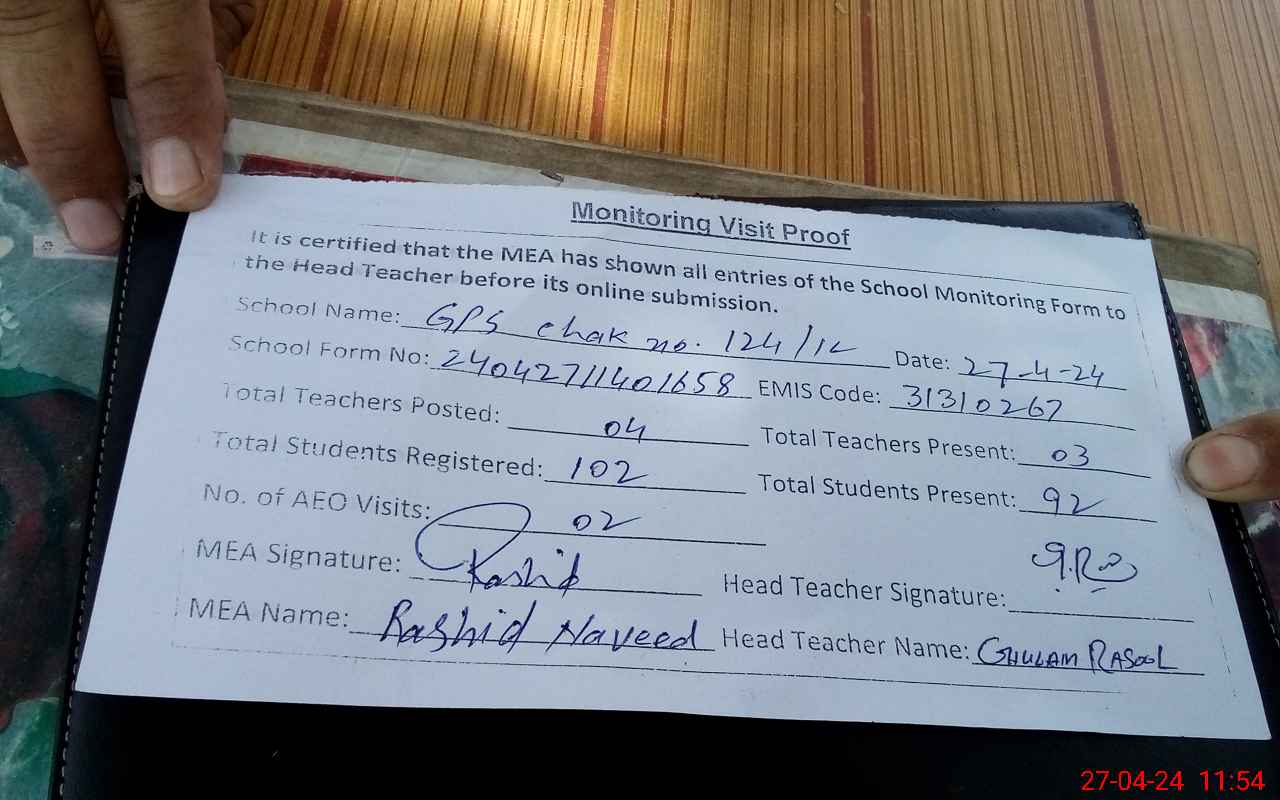 Monitoring Visit Proof
It is certified that the MEA has shown all entries of the School Monitoring Form to
the Head Teacher before its online submission.
School Name: GPS chak no. 124/1L Date: 27-4-24
School Form No: 24042711401658 EMIS Code: 31310267
Total Teachers Posted: 04 Total Teachers Present: 03
Total Students Registered: 102 Total Students Present: 92
No. of AEO Visits: 02
MEA Signature: Rashid Head Teacher Signature: G.R
MEA Name: Rashid Naveed Head Teacher Name: GHULAM RASOOL
27-04-24 11:54